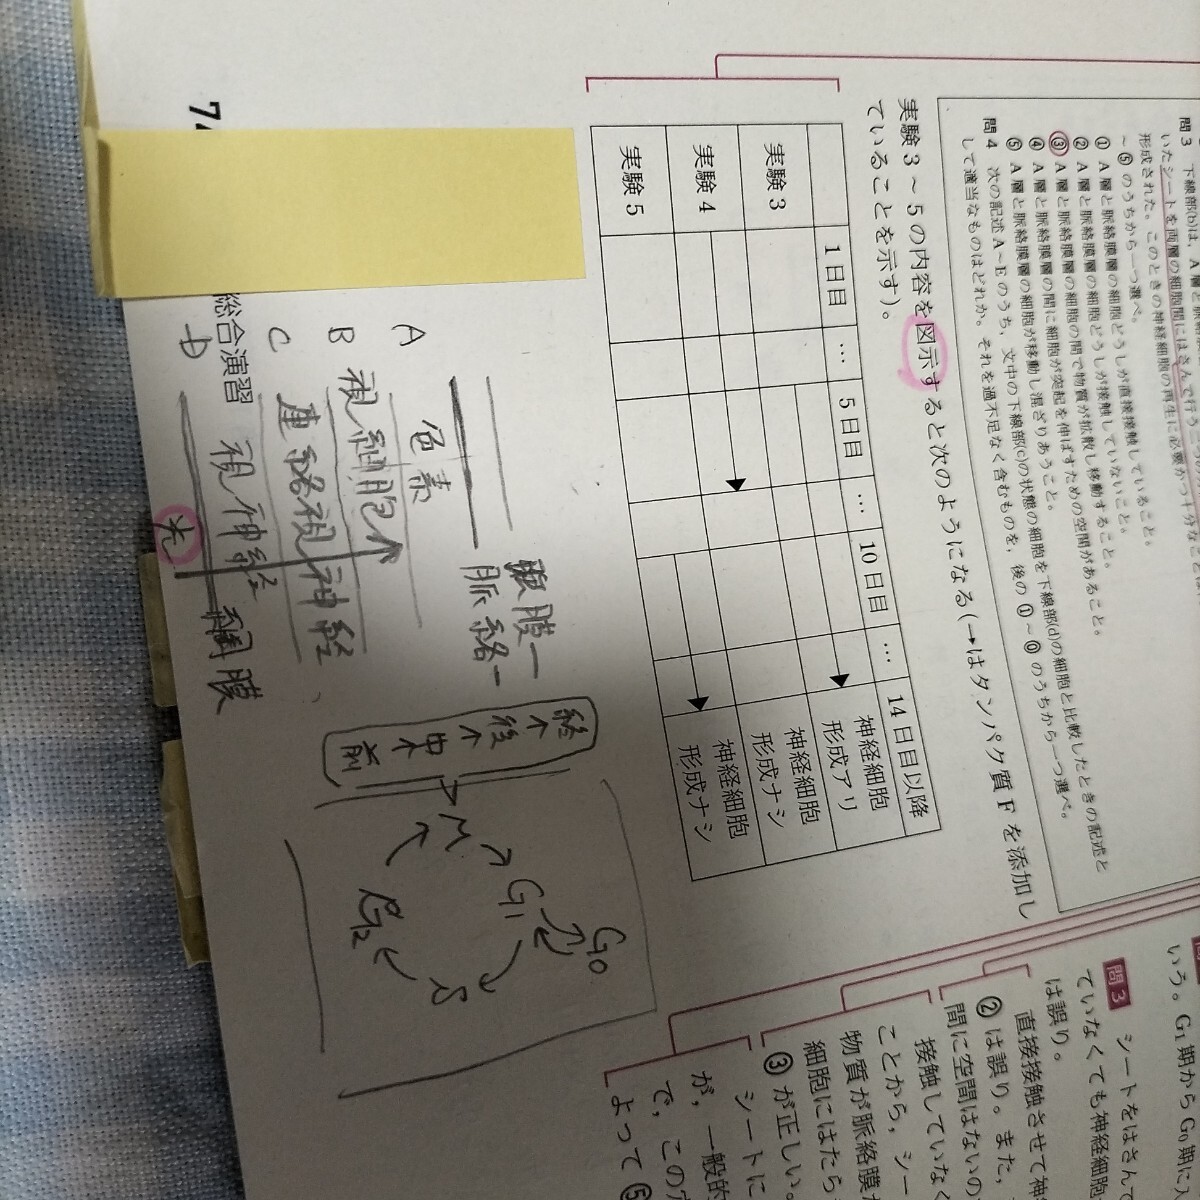 問3 下線部(b)は，A層と
いたシートを両層の細胞間にはさんで行う
形成された。このときの神経細胞の再生に必要かつ十分なこと
～⑤のうちから一つ選べ。
① A層と脈絡膜層の細胞どうしが直接接触していること。
② A層と脈絡膜層の細胞どうしが接触していないこと。
③ A層と脈絡膜層の細胞の間で物質が拡散し移動すること。
④ A層と脈絡膜層の間に細胞が突起を伸ばすための空間があること。
⑤ A層と脈絡膜層の細胞が移動し混ざりあうこと。
問4 次の記述A～Eのうち，文中の下線部(c)の状態の細胞を下線部(d)の細胞と比較したときの記述と
して適当なものはどれか。それを過不足なく含むものを，後の①～⓪のうちから一つ選べ。
実験3～5の内容を図示すると次のようになる(→はタンパク質Fを添加し
ていることを示す)。
1日目 … 5日目 … 10日目 … 14日目以降
実験3 神経細胞
形成アリ
実験4 神経細胞
形成ナシ
実験5 神経細胞
形成ナシ
強膜
脈絡
A 色素
B 視細胞
C 連絡視神経
D 視神経
網膜
光
終
後
中
前
M
G1
G0
S
G2
74
総合演習
いう。G1期からG0期に
問3 シートをはさん
ていなくても神経細胞
は誤り。
直接接触させて神
②は誤り。また，
間に空間はないの
接触していなく
ことから，シー
物質が脈絡膜
細胞にはたら
③が正しい。
シートに
が，一般的
で，この
よって⑤